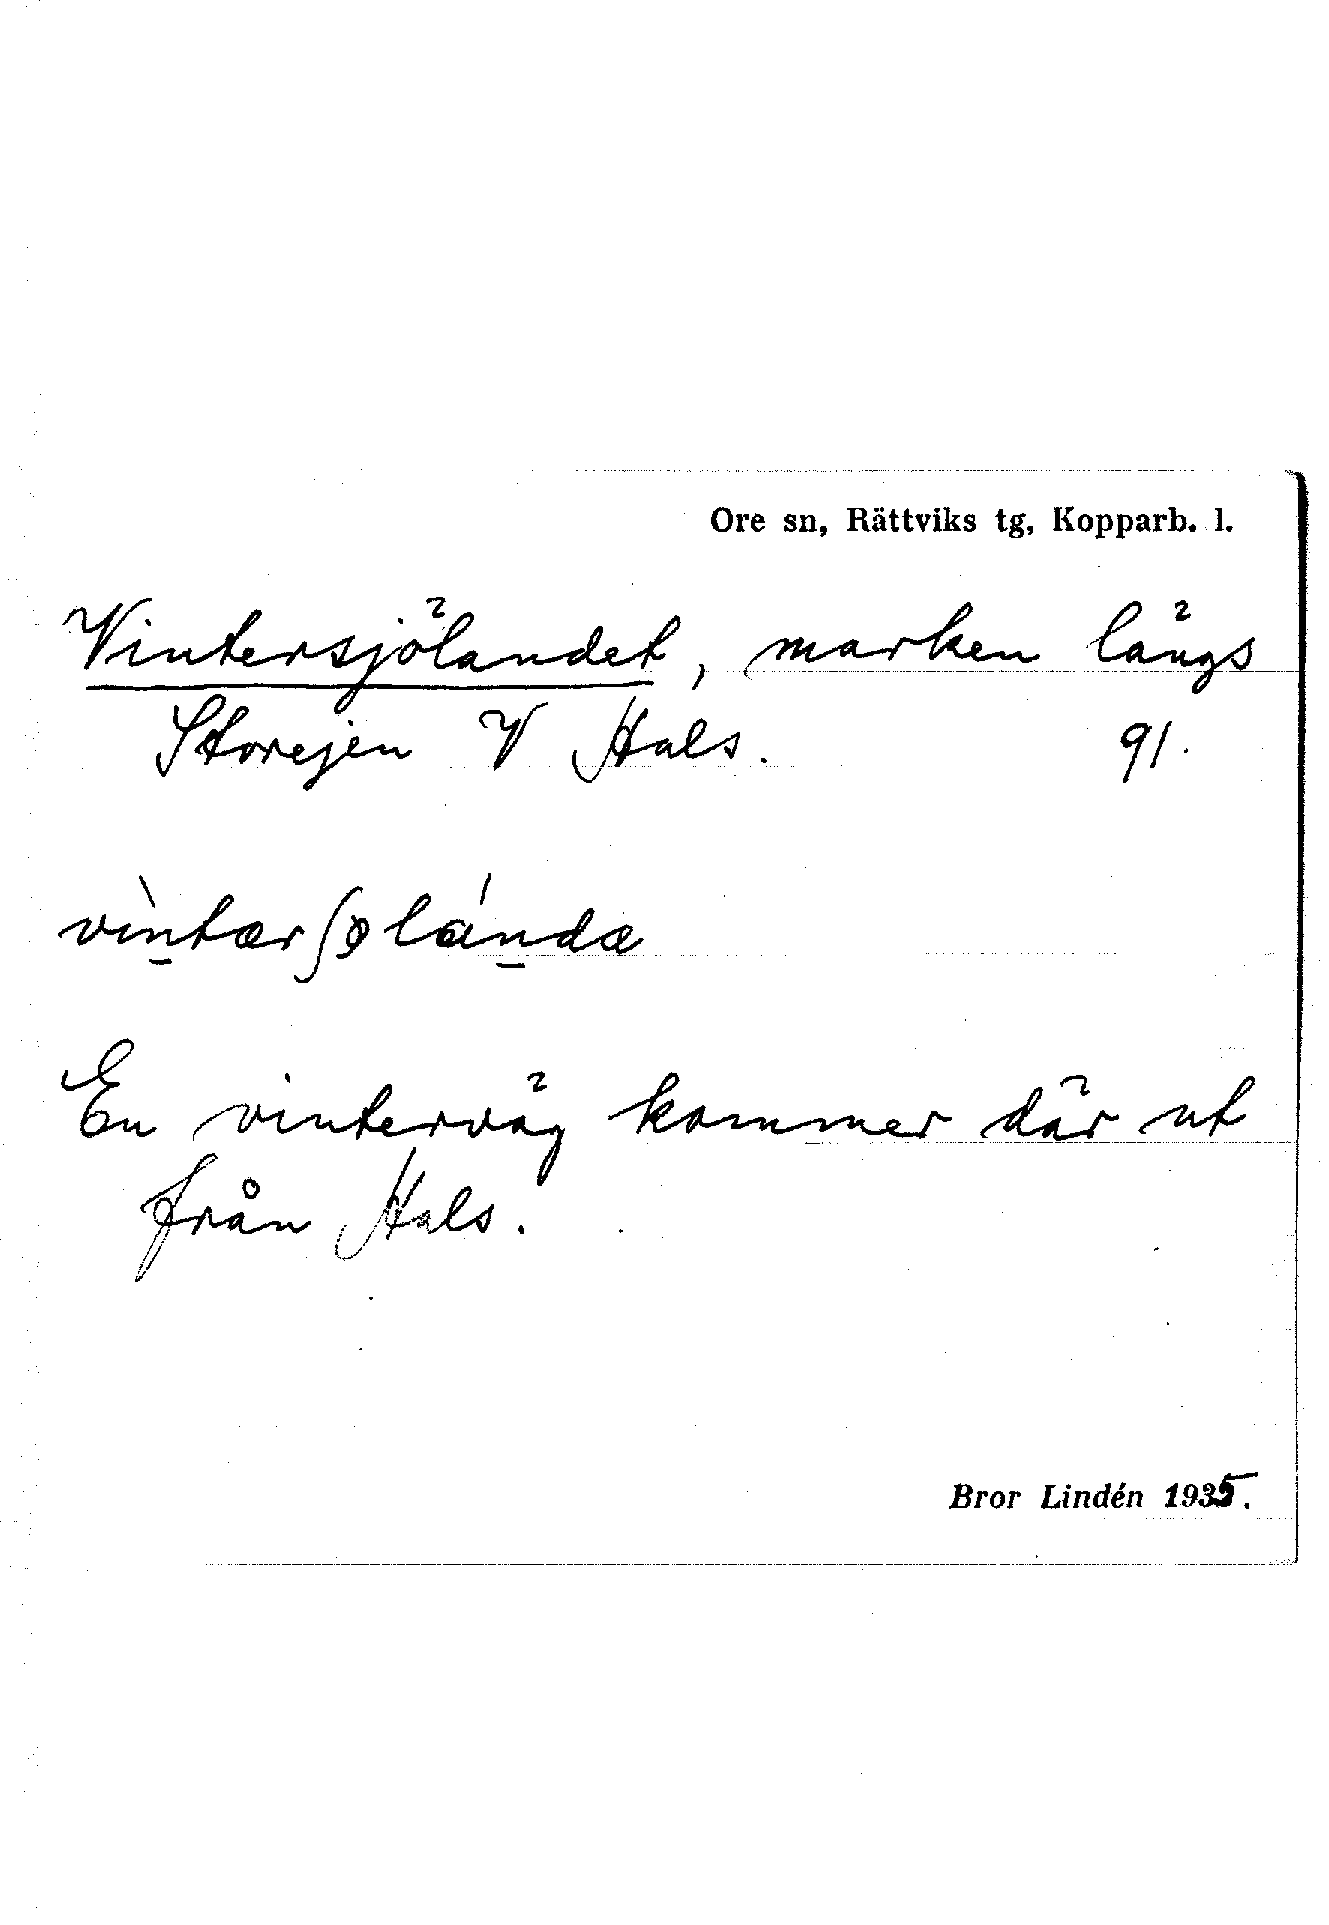 Ore sn, Rättviks tg, Kopparb. l.
Vintersjölandet, marken längs
Storejen V Hals. 91.
vìntær ʃølándæ
En binterväg kommer där ut
från Hals.
Bror Lindén 1935.